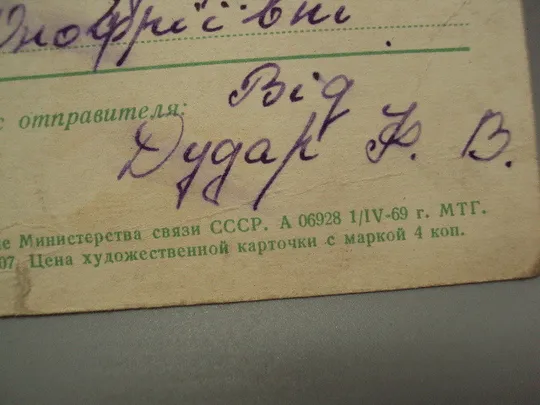 Онофріївні
с отправителя: Від
Дудар Ф. В.
ие Министерства связи СССР. А 06928 1/IV-69 г. МТГ.
07. Цена художественной карточки с маркой 4 коп.